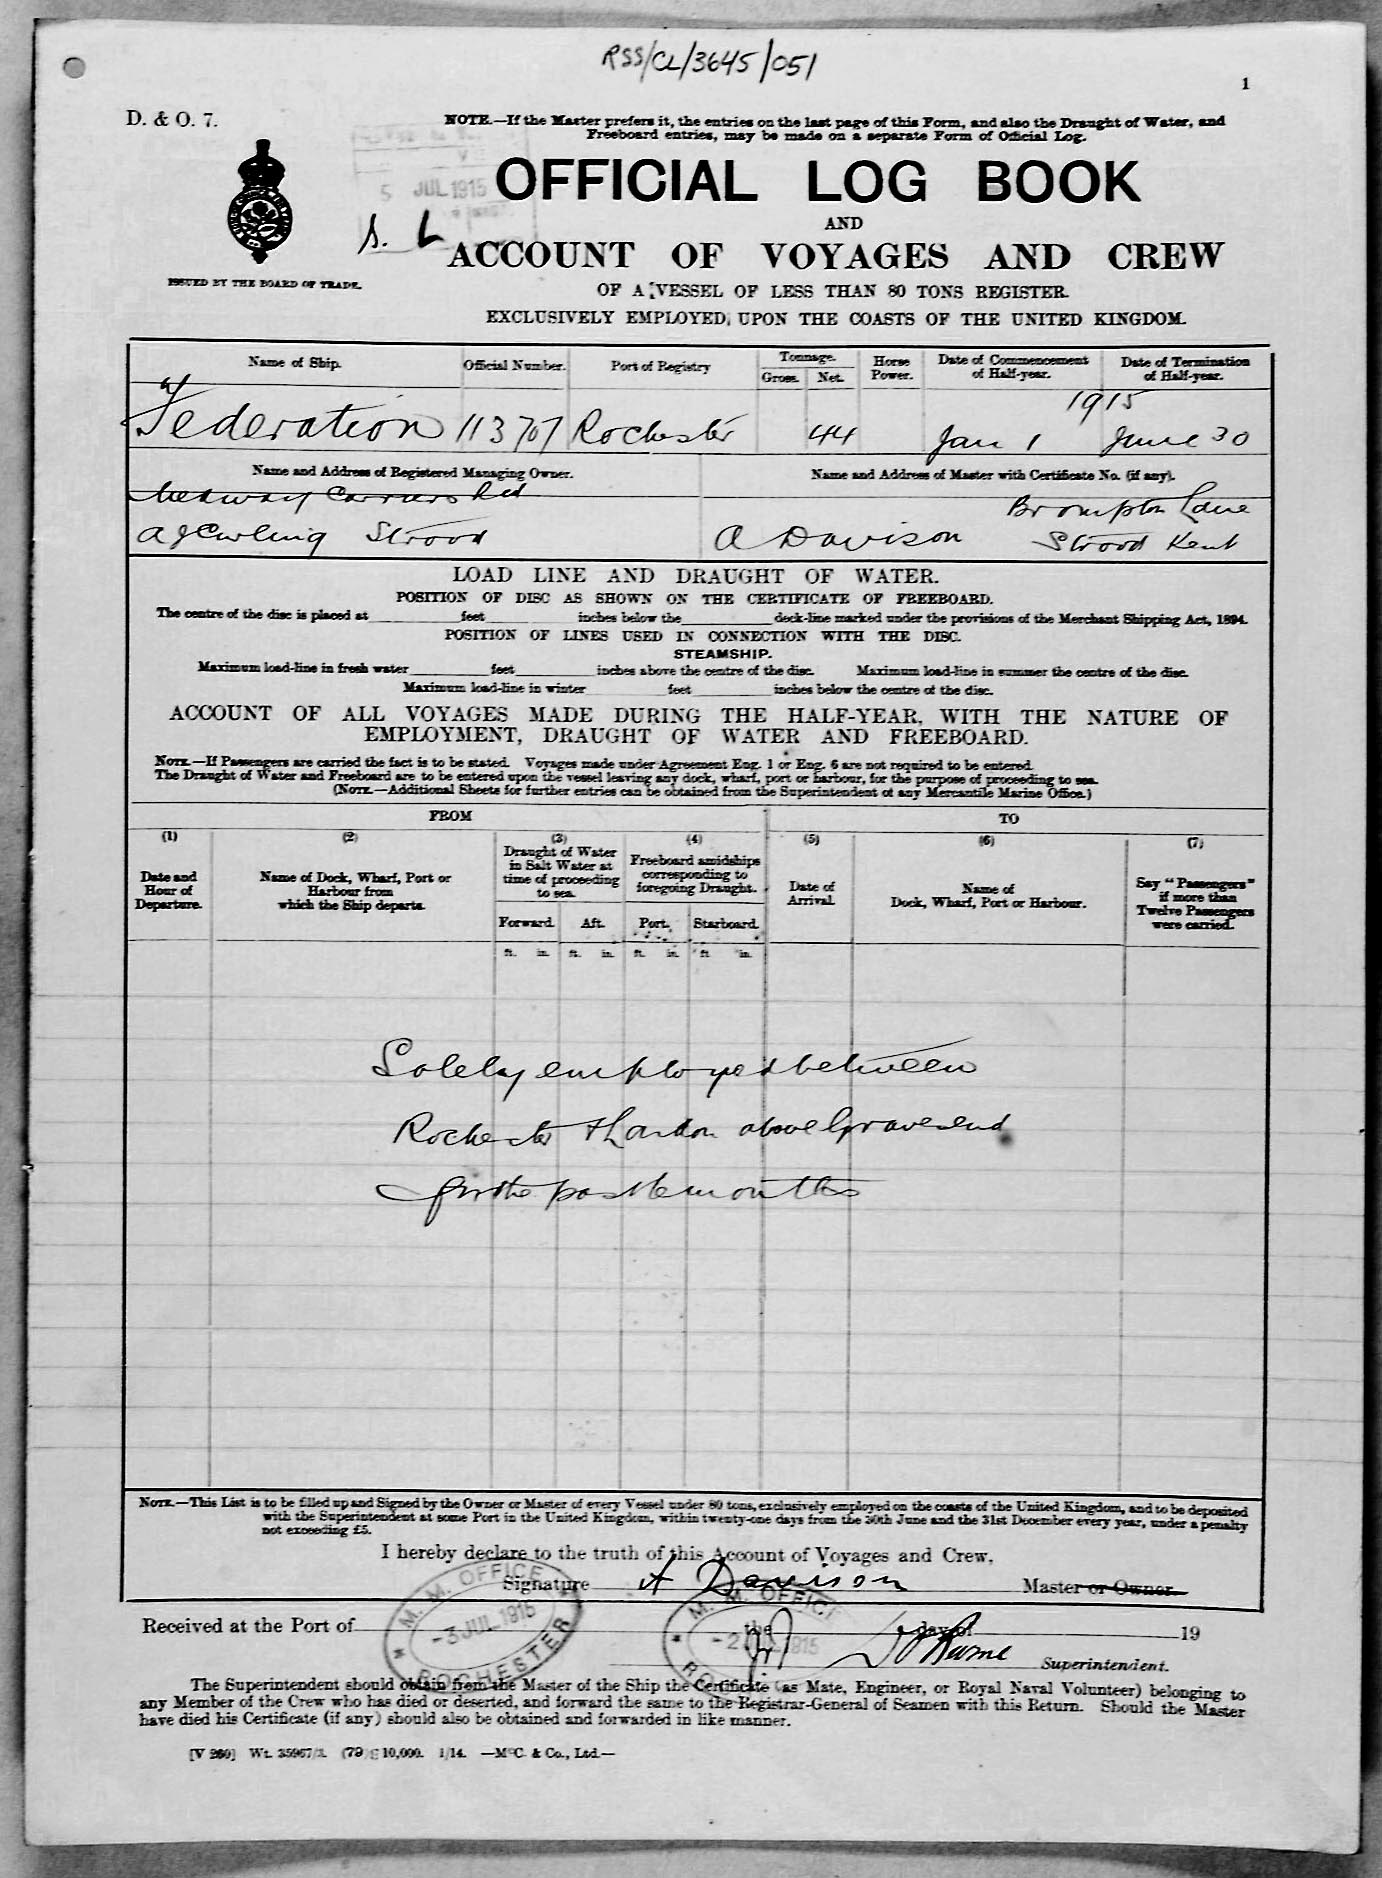 RSS/CL/3645/051
1
D. & O. 7.
NOTE.—If the Master prefers it, the entries on the last page of this Form, and also the Draught of Water, and
Freeboard entries, may be made on a separate Form of Official Log.
5 JUL 1915
OFFICIAL LOG BOOK
AND
S. L
ACCOUNT OF VOYAGES AND CREW
ISSUED BY THE BOARD OF TRADE.
OF A VESSEL OF LESS THAN 80 TONS REGISTER
EXCLUSIVELY EMPLOYED, UPON THE COASTS OF THE UNITED KINGDOM.
Name of Ship. Official Number. Port of Registry Tonnage. Gross. Net. Horse Power. Date of Commencement of Half-year. Date of Termination of Half-year.
1915
Federation 113707 Rochester 44 Jan 1 June 30
Name and Address of Registered Managing Owner. Name and Address of Master with Certificate No. (if any).
Medway Carriers Ltd Brompton Lane
A J Curling Strood A Davison Strood Kent
LOAD LINE AND DRAUGHT OF WATER.
POSITION OF DISC AS SHOWN ON THE CERTIFICATE OF FREEBOARD.
The centre of the disc is placed at feet inches below the deck-line marked under the provisions of the Merchant Shipping Act, 1894.
POSITION OF LINES USED IN CONNECTION WITH THE DISC.
STEAMSHIP.
Maximum load-line in fresh water feet inches above the centre of the disc. Maximum load-line in summer the centre of the disc.
Maximum load-line in winter feet inches below the centre of the disc.
ACCOUNT OF ALL VOYAGES MADE DURING THE HALF-YEAR, WITH THE NATURE OF
EMPLOYMENT, DRAUGHT OF WATER AND FREEBOARD.
NOTE.—If Passengers are carried the fact is to be stated. Voyages made under Agreement Eng. 1 or Eng. 6 are not required to be entered.
The Draught of Water and Freeboard are to be entered upon the vessel leaving any dock, wharf, port or harbour, for the purpose of proceeding to sea.
(NOTE.—Additional Sheets for further entries can be obtained from the Superintendent of any Mercantile Marine Office.)
FROM TO
(1) (2) (3) (4) (5) (6) (7)
Date and Hour of Departure. Name of Dock, Wharf, Port or Harbour from which the Ship departs. Draught of Water in Salt Water at time of proceeding to sea. Freeboard amidships corresponding to foregoing Draught. Date of Arrival. Name of Dock, Wharf, Port or Harbour. Say "Passengers" if more than Twelve Passengers were carried.
Forward. Aft. Port. Starboard.
ft. in. ft. in. ft. in. ft in.
Solely employed between
Rochester & London above Gravesend
for the past 6 months
NOTE.—This List is to be filled up and Signed by the Owner or Master of every Vessel under 80 tons, exclusively employed on the coasts of the United Kingdom, and to be deposited
with the Superintendent at some Port in the United Kingdom, within twenty-one days from the 30th June and the 31st December every year, under a penalty
not exceeding £5.
I hereby declare to the truth of this Account of Voyages and Crew.
Signature A Davison Master or Owner.
M. M. OFFICE
-3 JUL 1915
ROCHESTER
M. M. OFFICE
-2 JUL 1915
Received at the Port of the day of 19
Superintendent.
The Superintendent should obtain from the Master of the Ship the Certificate (as Mate, Engineer, or Royal Naval Volunteer) belonging to
any Member of the Crew who has died or deserted, and forward the same to the Registrar-General of Seamen with this Return. Should the Master
have died his Certificate (if any) should also be obtained and forwarded in like manner.
[V 260] Wt. 35967/3. (79) 10,000. 1/14. —McC. & Co., Ltd.—